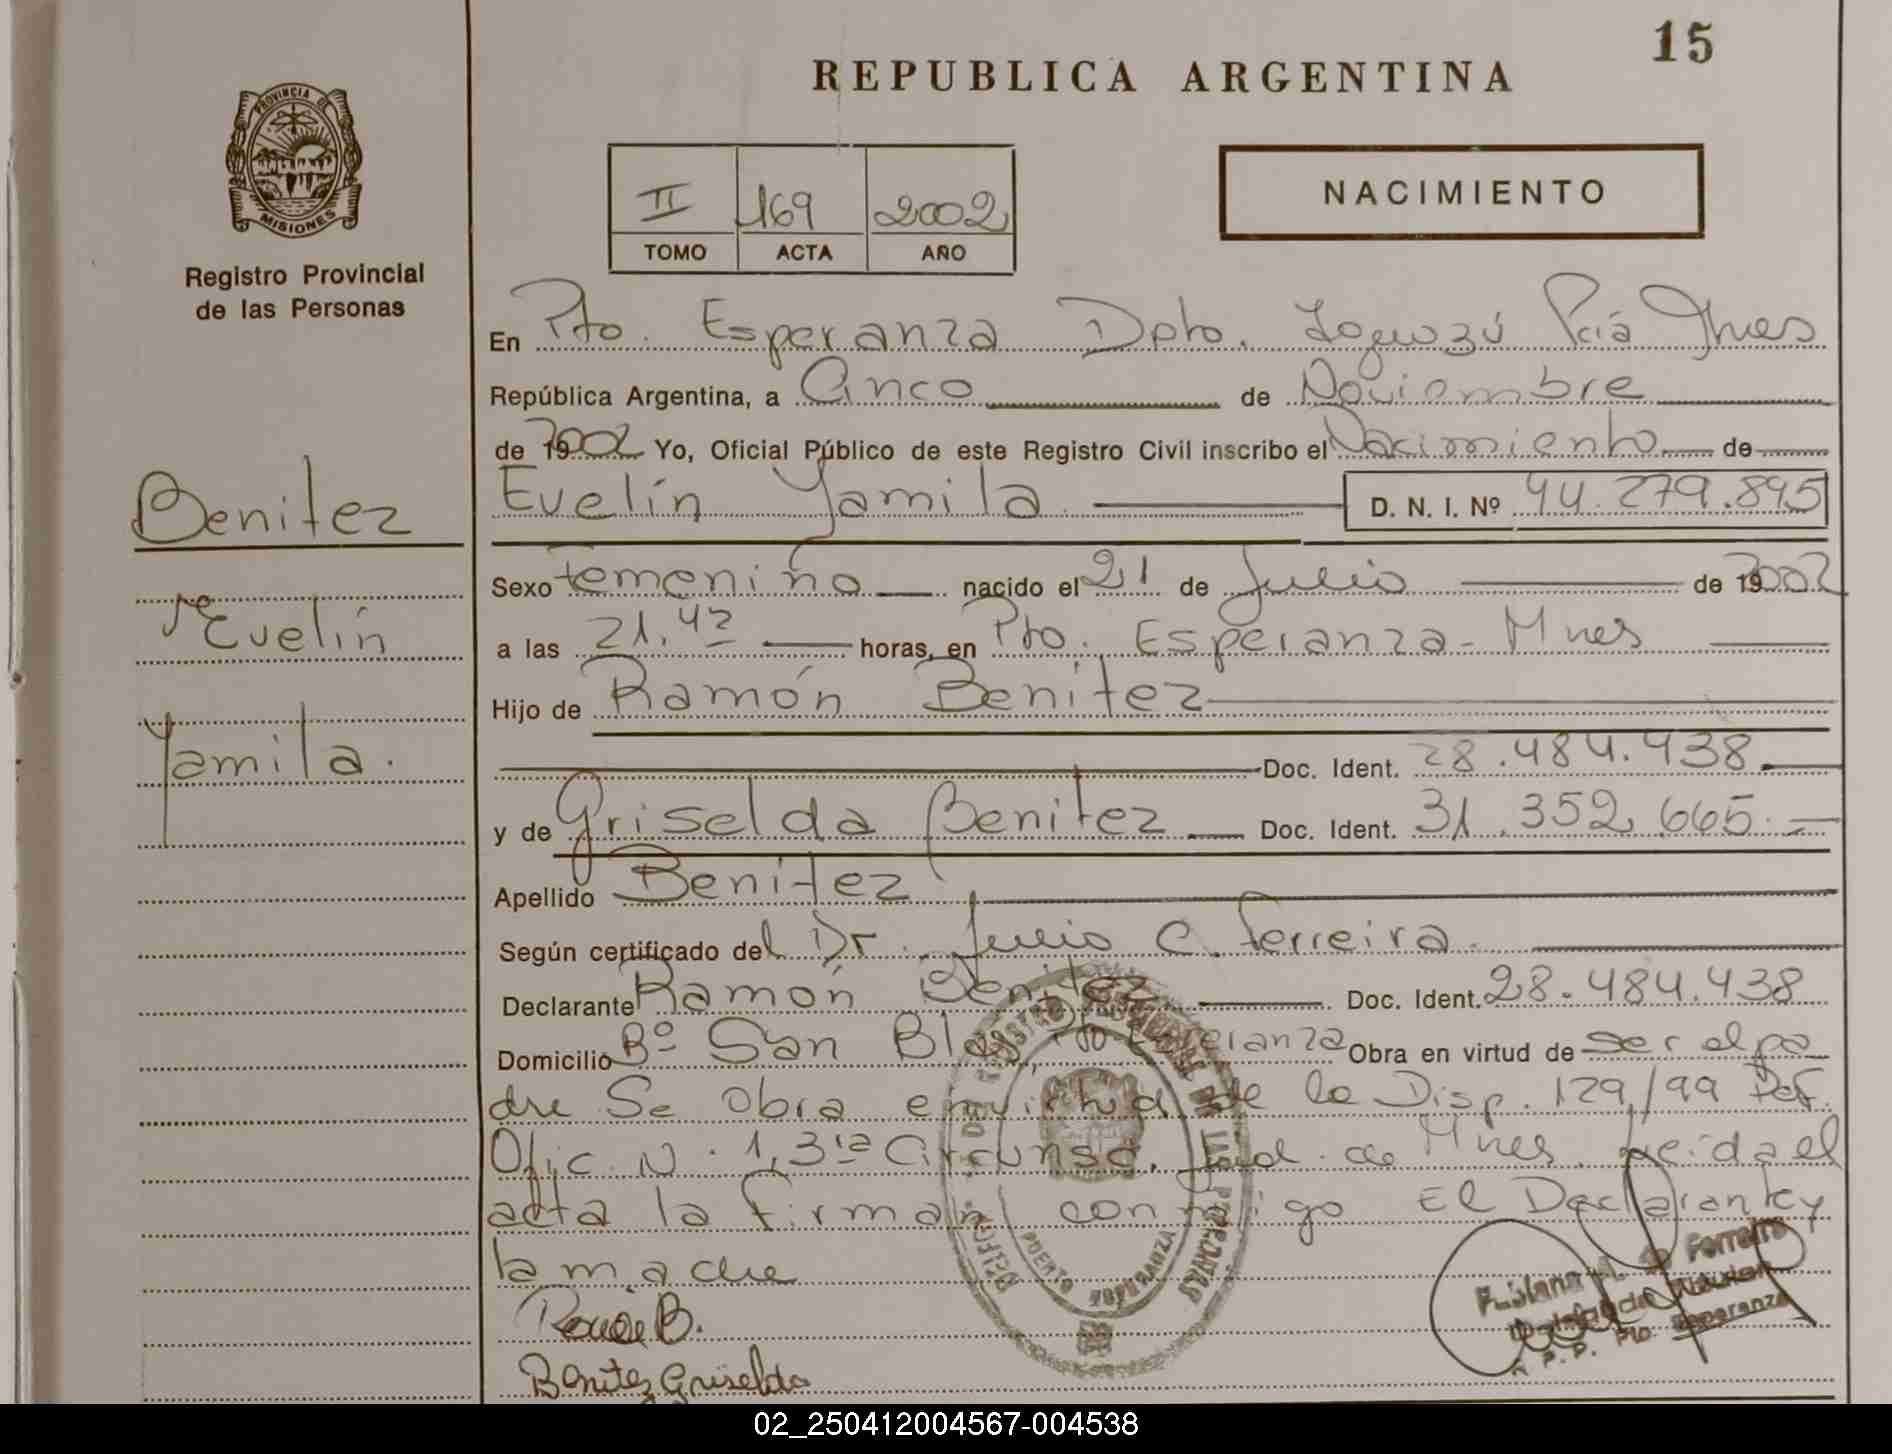 15
REPUBLICA ARGENTINA
PROVINCIA DE
MISIONES
Registro Provincial
de las Personas
II 169 2002
TOMO ACTA AÑO
NACIMIENTO
En Pto. Esperanza Dpto. Iguazú Pcia Mnes
República Argentina, a Cinco de Noviembre
de 2002 Yo, Oficial Público de este Registro Civil inscribo el Nacimiento de
Evelín Yamila D. N. I. Nº 44.279.895
Benitez
Evelín
Yamila.
Sexo femenino nacido el 21 de Julio de 2002
a las 21.42 horas, en Pto. Esperanza - Mnes
Hijo de Ramón Benitez
Doc. Ident. 28.484.438
y de Griselda Benitez Doc. Ident. 31.352.665.
Apellido Benitez
Según certificado del Dr. Julio C. Ferreira.
Declarante Ramón Benitez Doc. Ident. 28.484.438
Domicilio Bº San Blas, Pto Esperanza Obra en virtud de ser el pa
dre Se obra en virtud de la Disp. 129/99 Def.
Ofic. N. 1, 3ra Circunsc. Jud. de Mnes. Leida el
acta la firman conmigo El Declarante y
la madre
B.
Benitez Griselda
PUERTO ESPERANZA
Ferreira
Pto. Esperanza
02_250412004567-004538